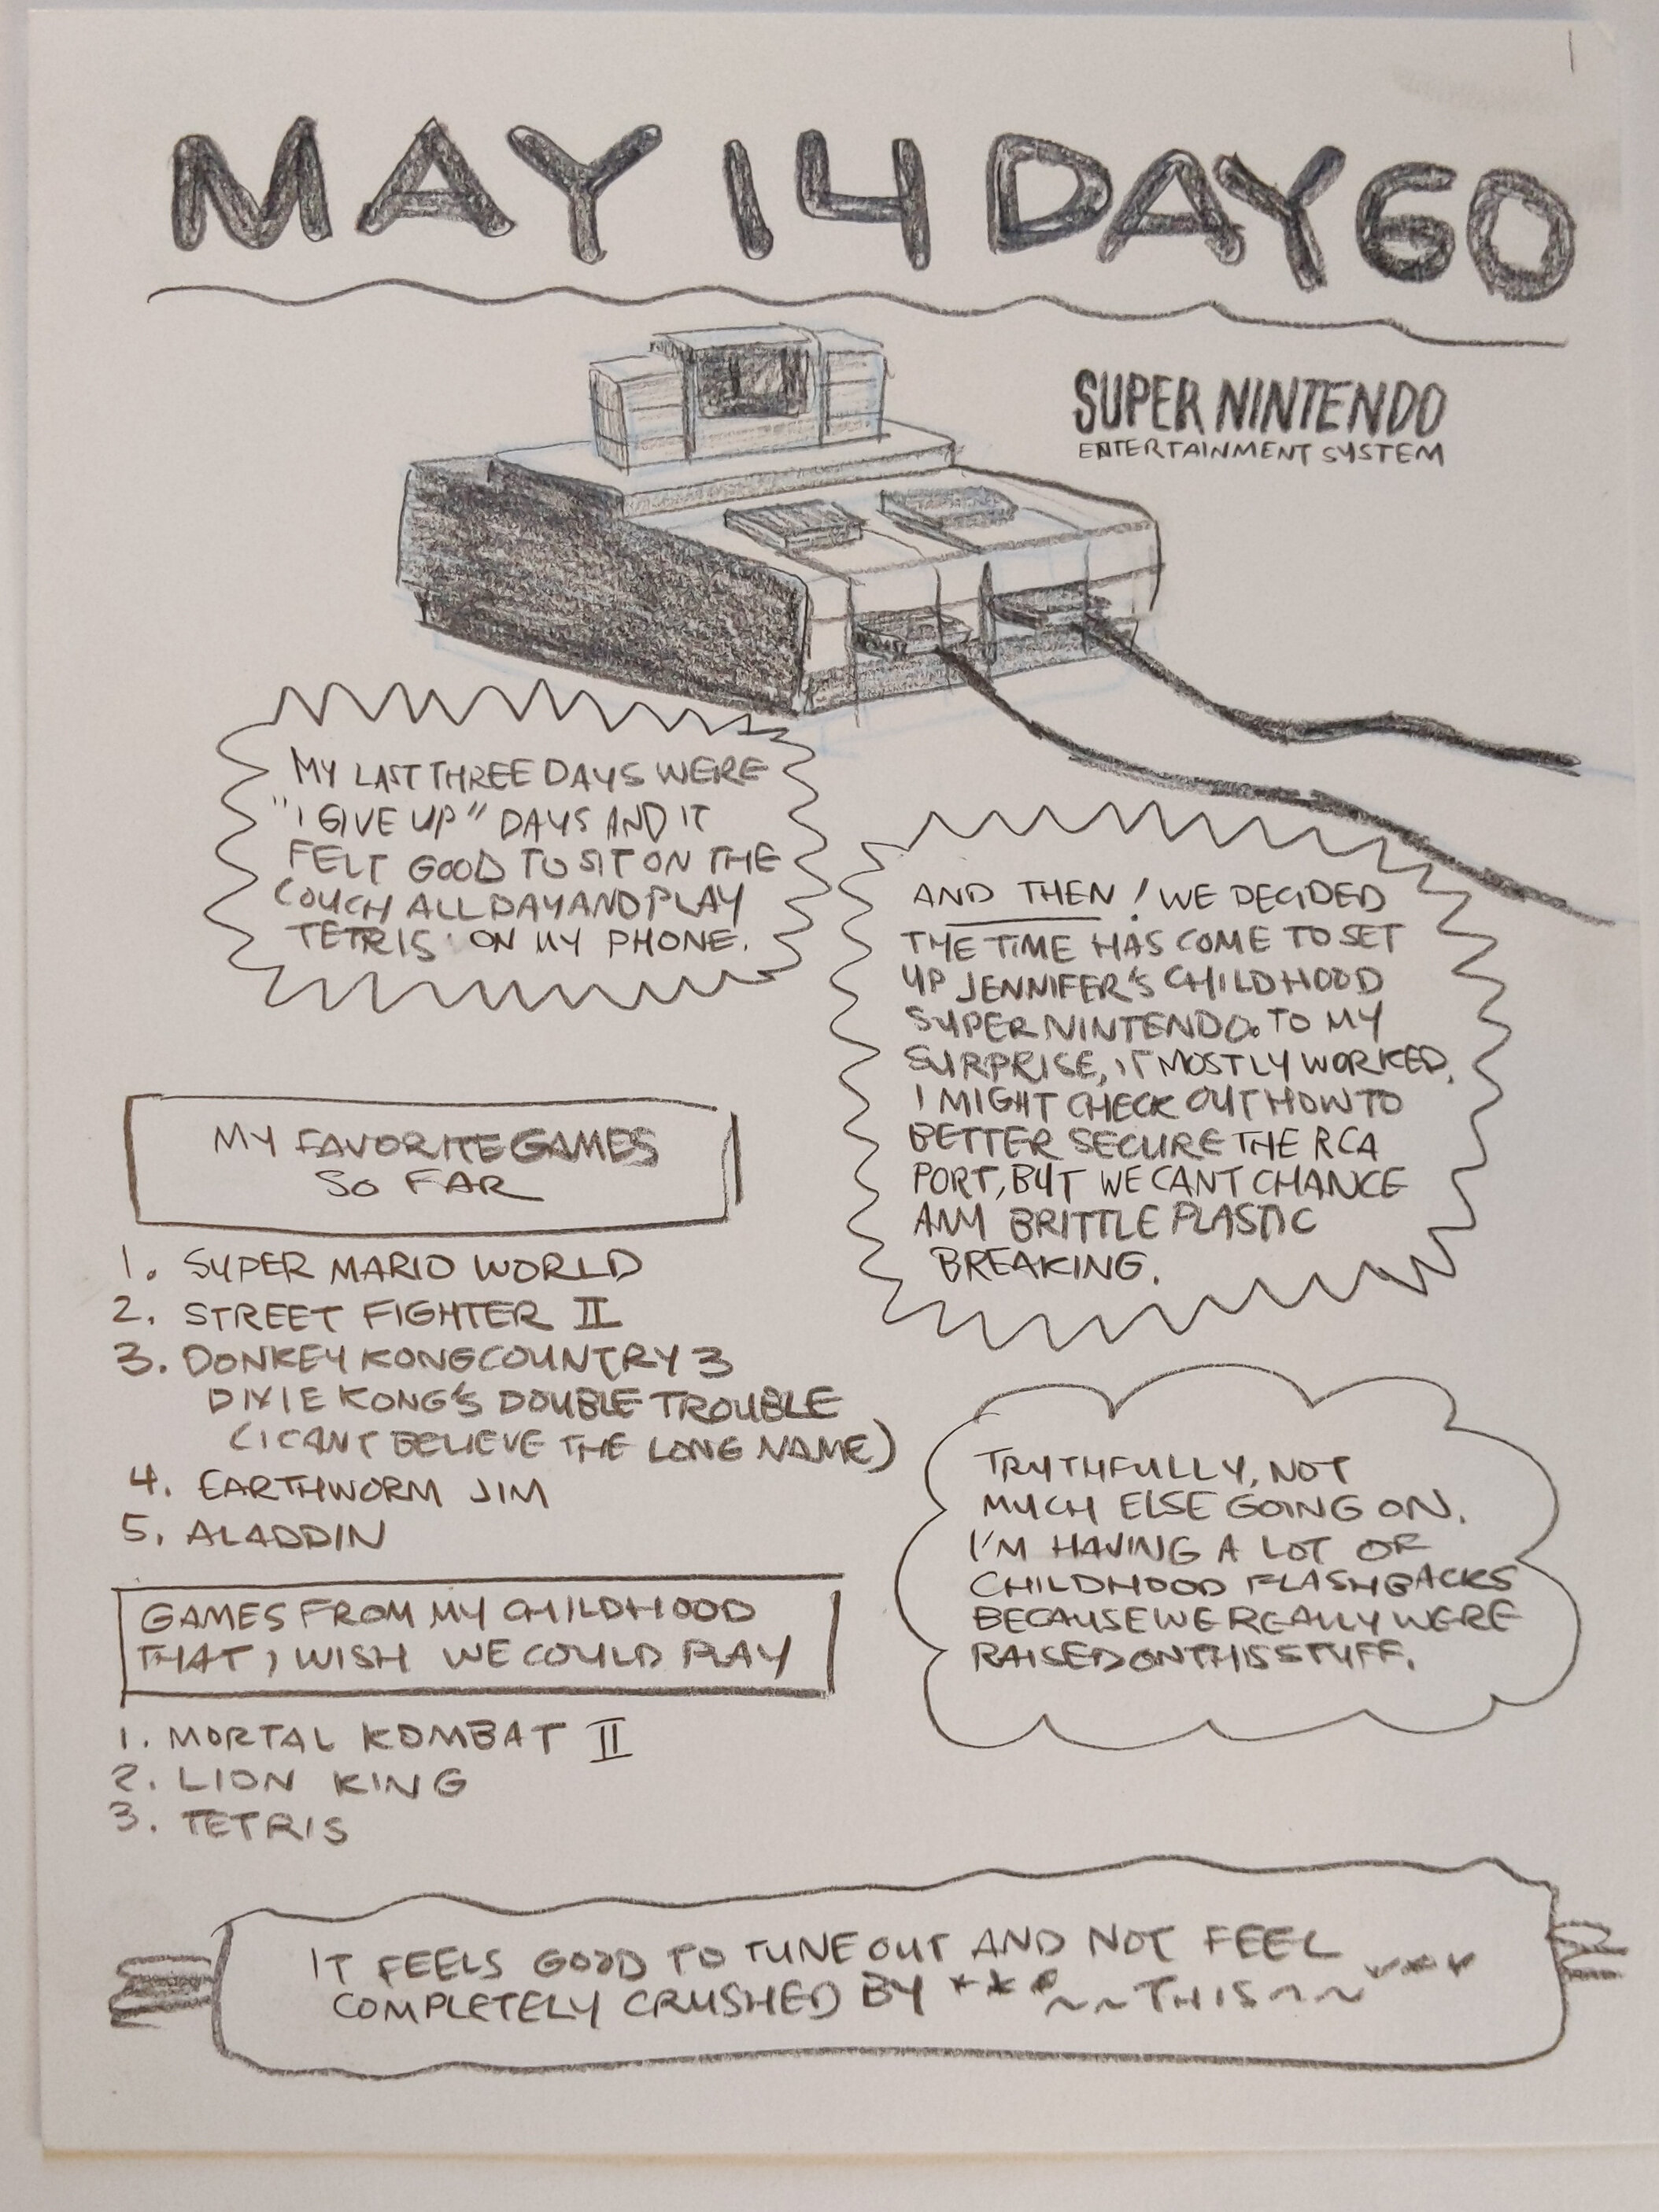 MAY 14 DAY 60
SUPER NINTENDO
ENTERTAINMENT SYSTEM
MY LAST THREE DAYS WERE
"I GIVE UP" DAYS AND IT
FELT GOOD TO SIT ON THE
COUCH ALL DAY AND PLAY
TETRIS ON MY PHONE.
AND THEN! WE DECIDED
THE TIME HAS COME TO SET
UP JENNIFER'S CHILDHOOD
SUPER NINTENDO. TO MY
SURPRISE, IT MOSTLY WORKED.
I MIGHT CHECK OUT HOW TO
BETTER SECURE THE RCA
PORT, BUT WE CANT CHANCE
ANY BRITTLE PLASTIC
BREAKING.
MY FAVORITE GAMES
SO FAR
1. SUPER MARIO WORLD
2. STREET FIGHTER II
3. DONKEY KONG COUNTRY 3
DIXIE KONG'S DOUBLE TROUBLE
(I CANT BELIEVE THE LONG NAME)
4. EARTHWORM JIM
5. ALADDIN
GAMES FROM MY CHILDHOOD
THAT I WISH WE COULD PLAY
1. MORTAL KOMBAT II
2. LION KING
3. TETRIS
TRUTHFULLY, NOT
MUCH ELSE GOING ON.
I'M HAVING A LOT OF
CHILDHOOD FLASHBACKS
BECAUSE WE REALLY WERE
RAISED ON THIS STUFF.
IT FEELS GOOD TO TUNE OUT AND NOT FEEL
COMPLETELY CRUSHED BY ***~~THIS~~***